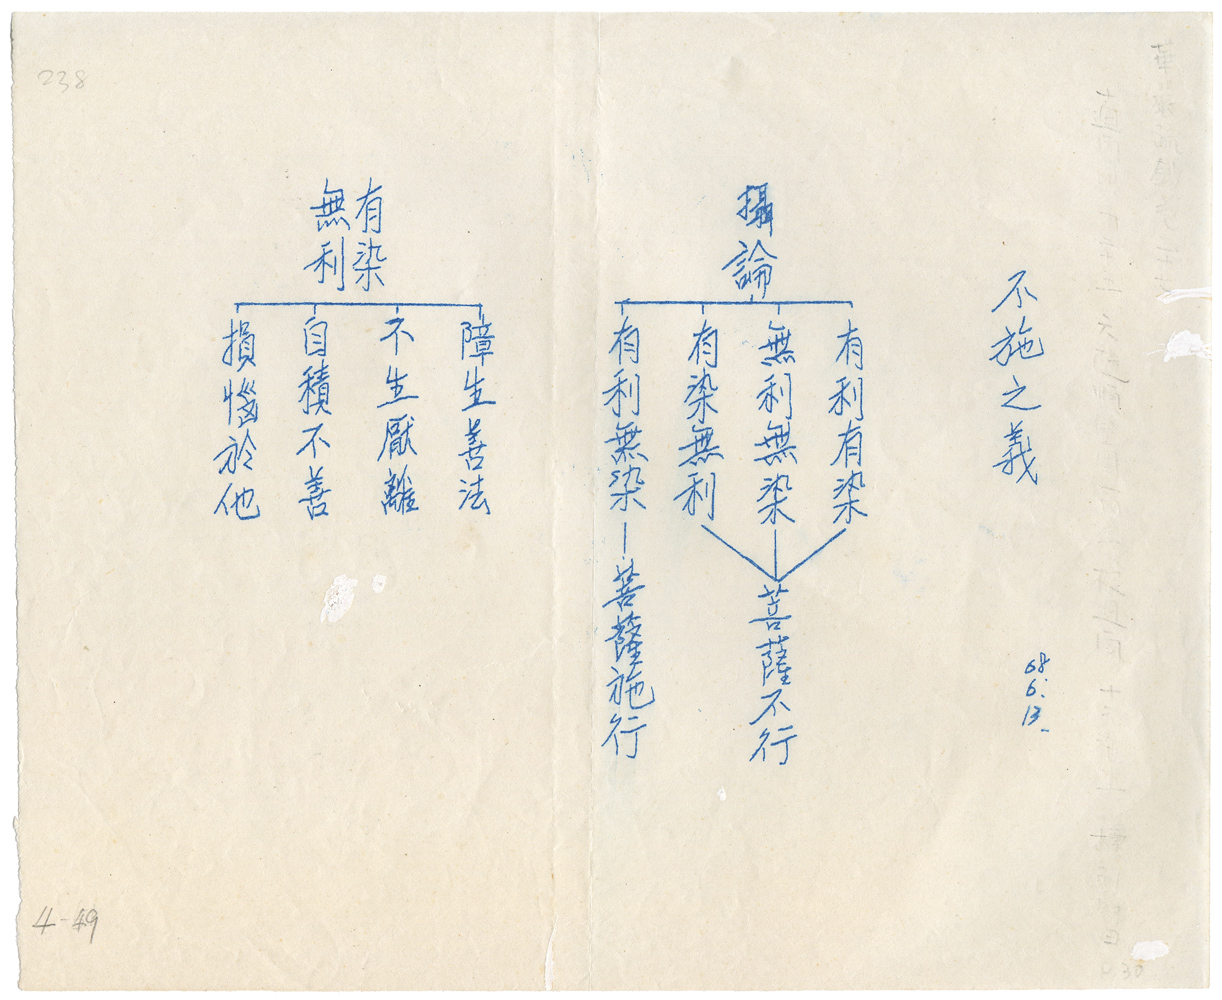 不施之義
68.
6.
13.
攝論
有利有染
無利無染
有染無利
菩薩不行
有利無染
菩薩施行
有染
無利
障生善法
不生厭離
自積不善
損惱於他
238
4-49